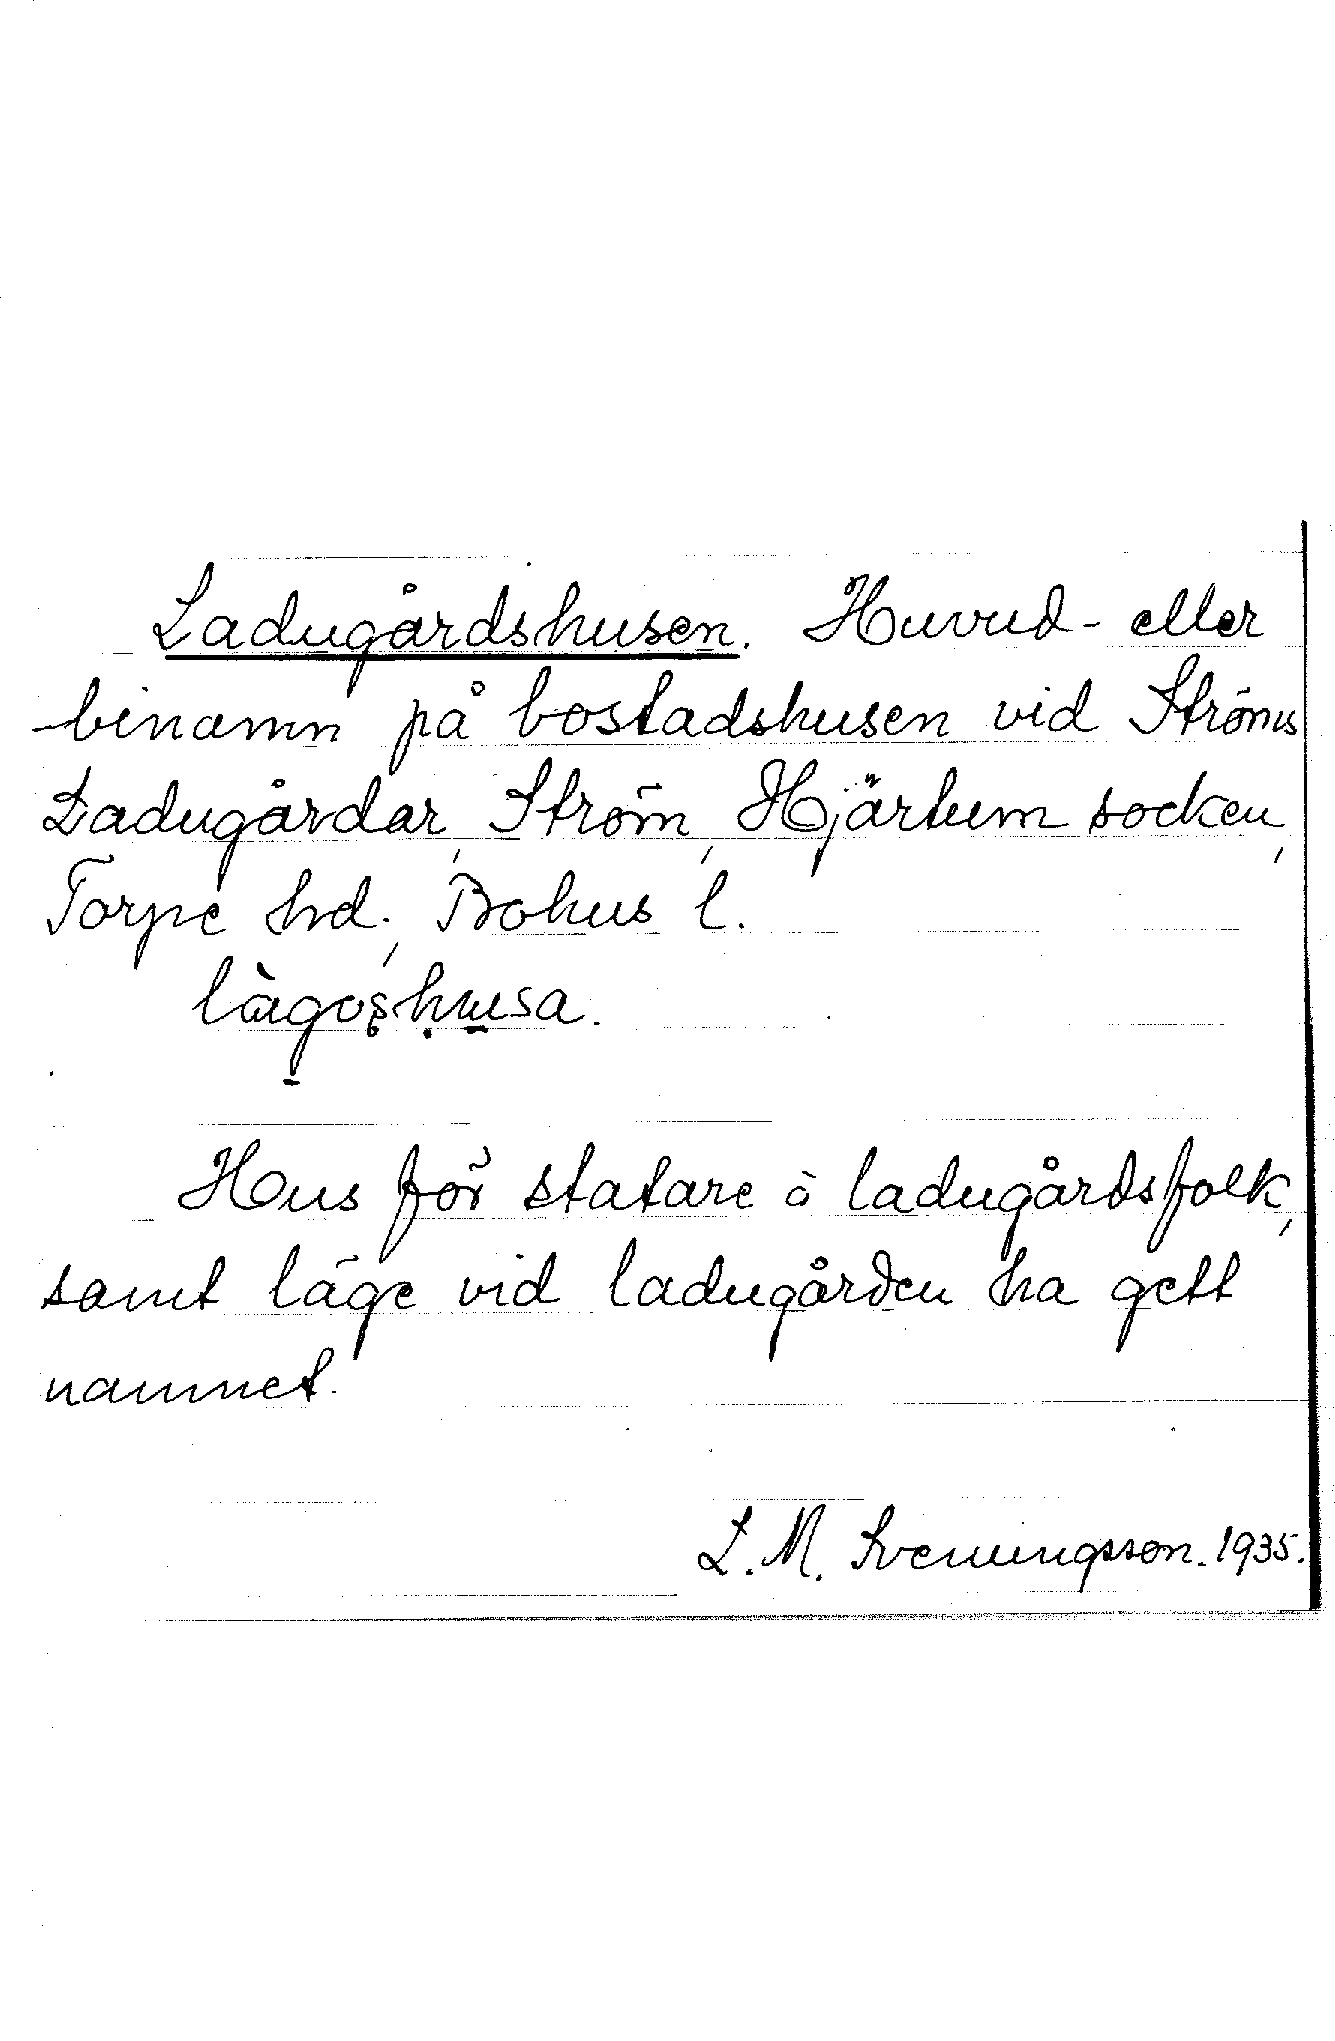 Ladugårdshusen. Huvud- eller
binamn på bostadshusen vid Ströms
Ladugårdar, Ström, Hjärtum socken,
Torpe hd., Bohus l.
làgoshusa.
Hus för statare å ladugårdsfolk,
samt läge vid ladugården ha gett
namnet.
L. M. Svenungsson. 1935.